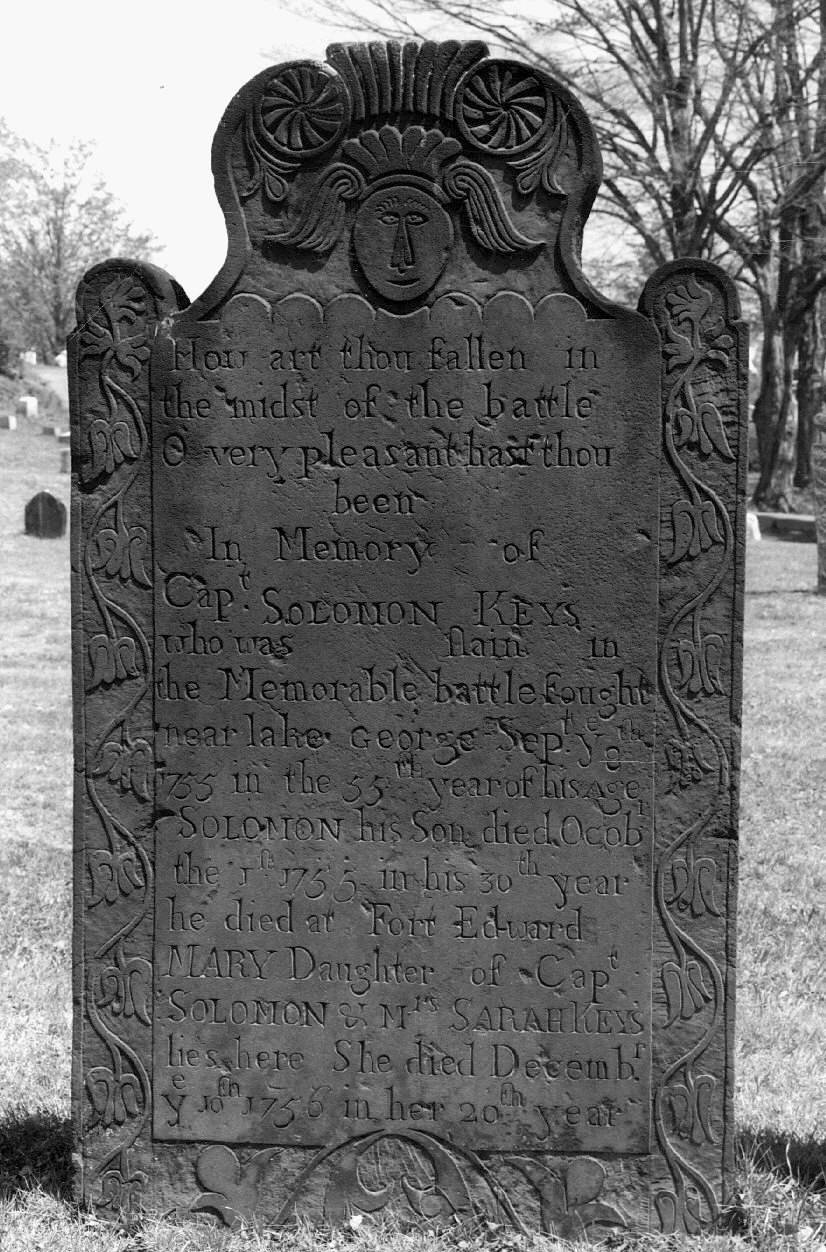 How art thou fallen in
the midst of the battle
O very pleasant hast thou
been
In Memory of
Capt. SOLOMON KEYS
who was slain in
the Memorable battle fought
near lake George Sept. ye 8th
1755 in the 55th year of his Age
SOLOMON his Son died Ocobr
the 1st 1755 in his 30th year
he died at Fort Edward
MARY Daughter of Capt
SOLOMON & Mrs SARAH KEYS
lies here She died Decembr.
ye 10th 1756 in her 20th year